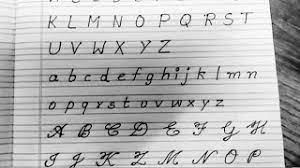 K L M N O P Q R S T
U V W X Y Z
a b c d e f g h i j k l m n
o p q r s t u v w x y z
A B C D E F G H
I J K L M N O P